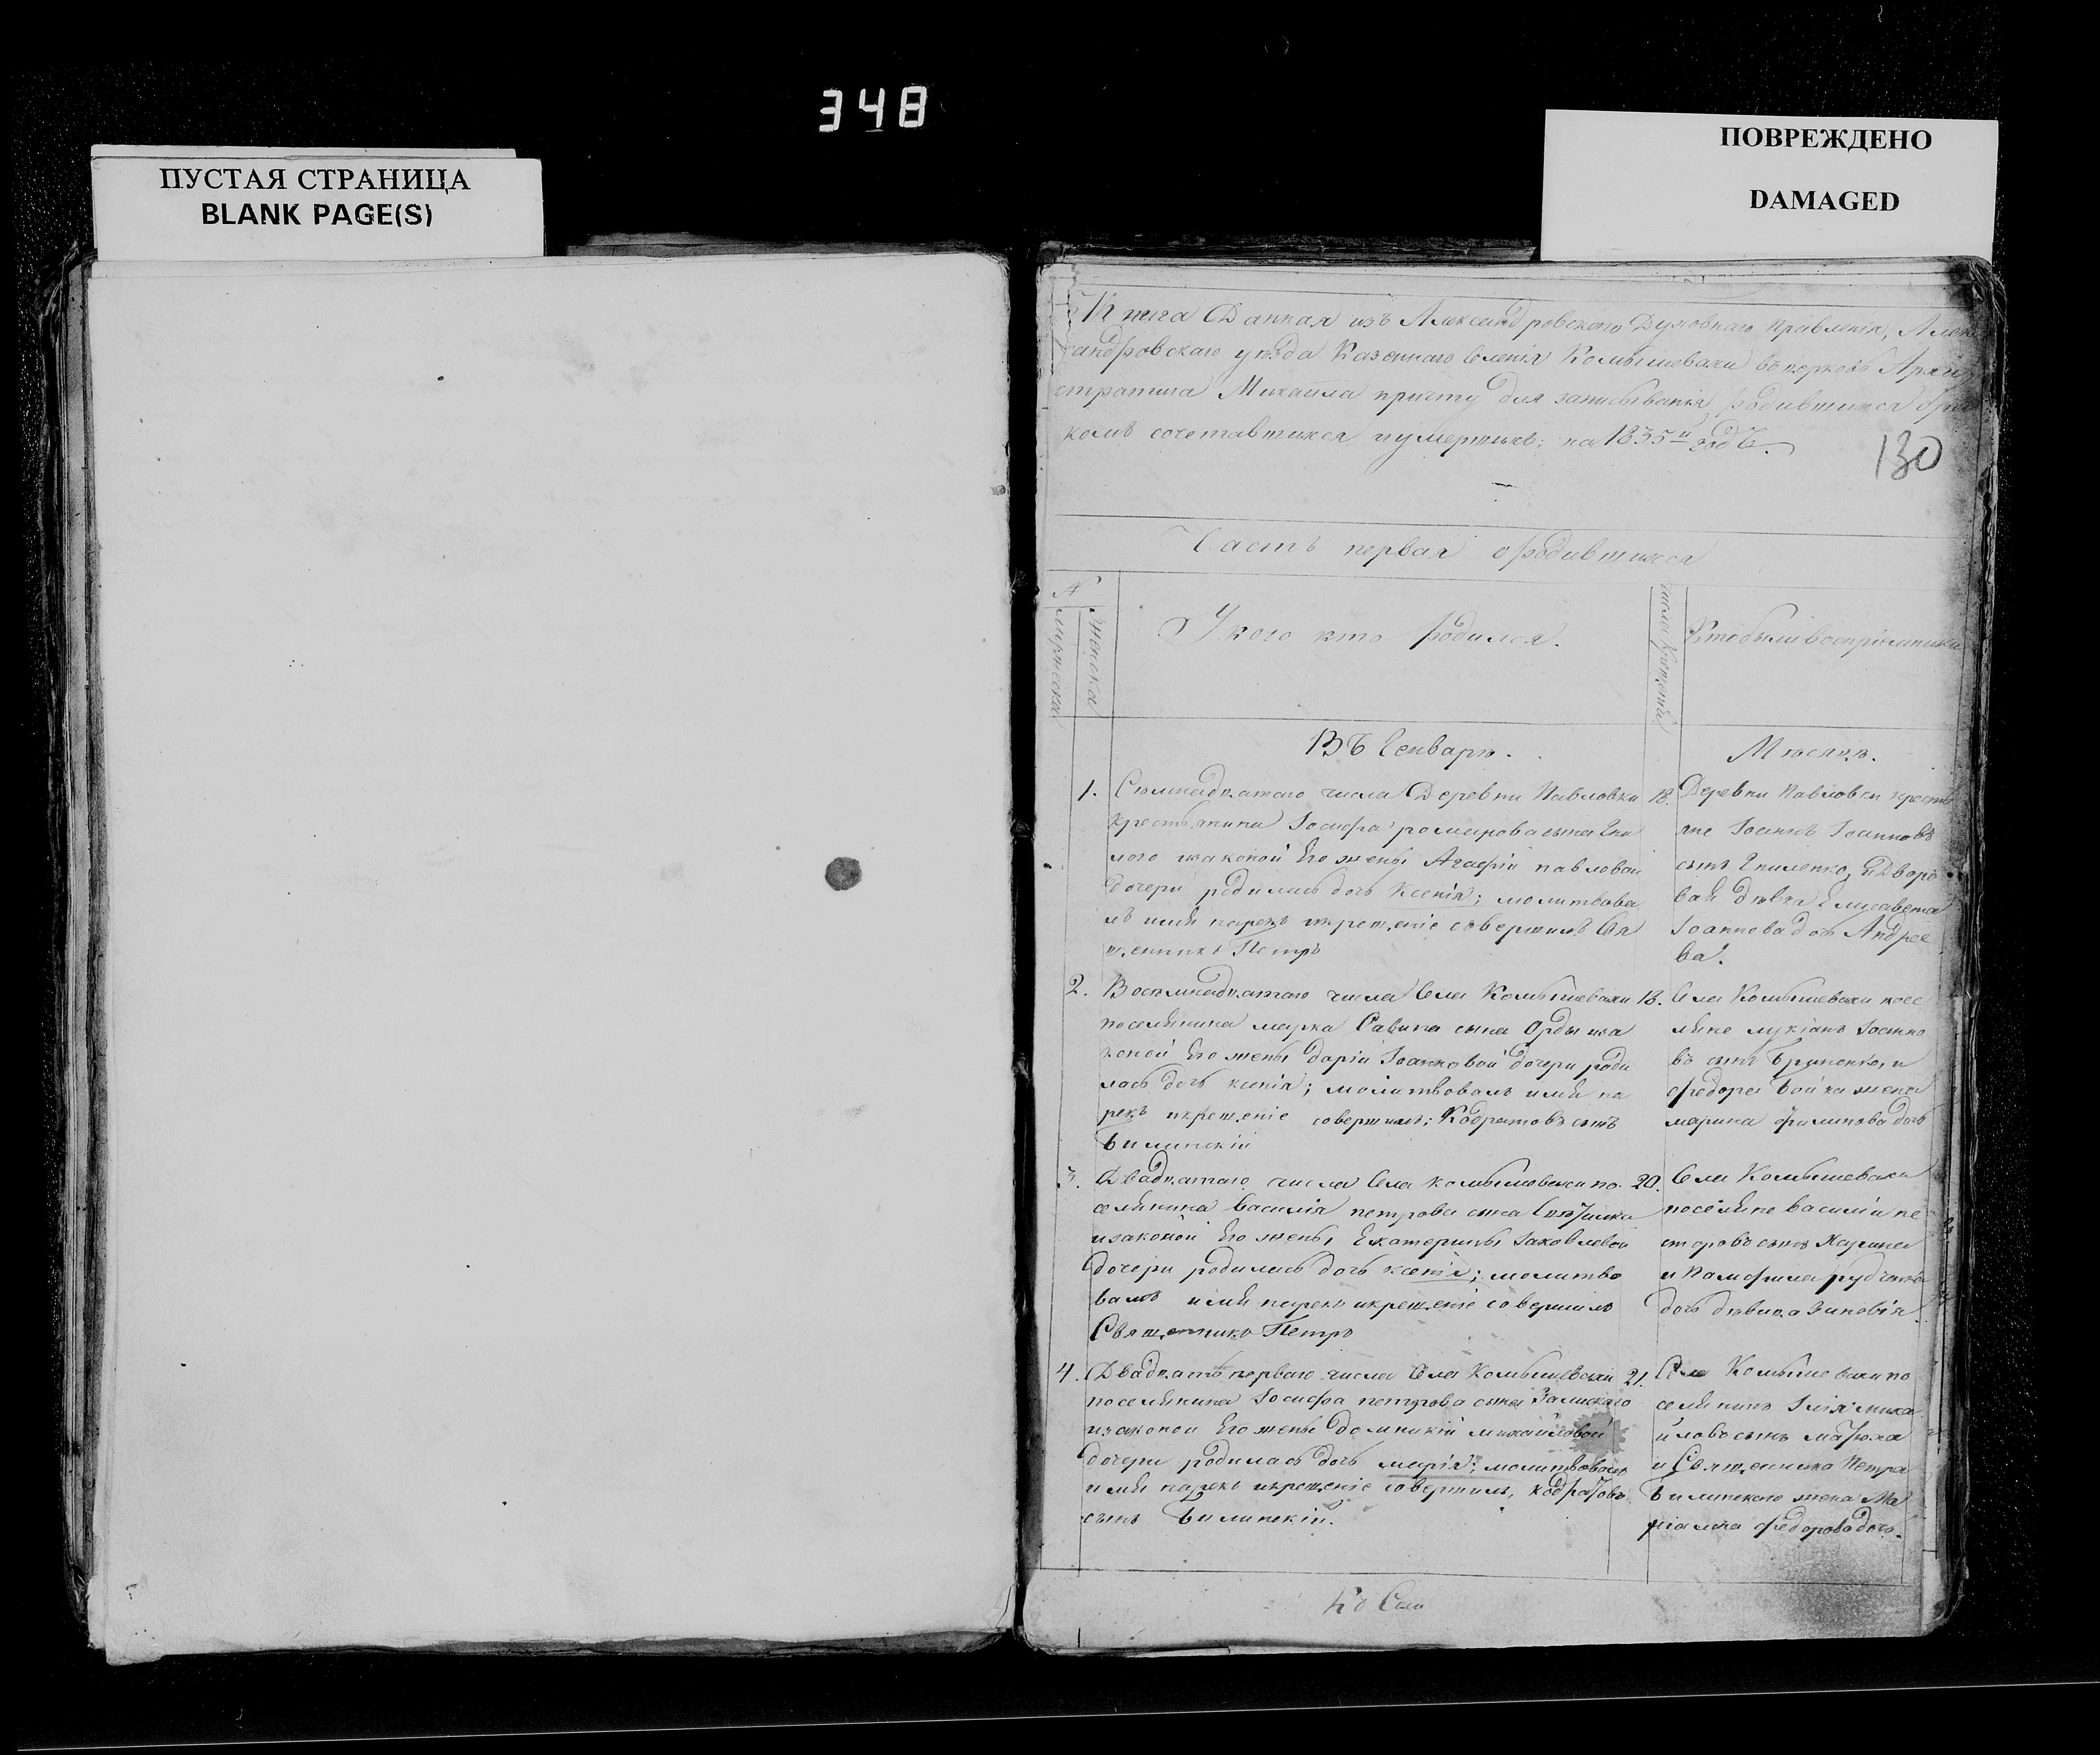 348
ПУСТАЯ СТРАНИЦА
BLANK PAGE(S)
ПОВРЕЖДЕНО
DAMAGED
Книга Данная изъ Александровскаго Духовнаго Правленія, Алек
сандровскаго уезда Казеннаго Селенія Комышевахи въ церковь Архи
стратига Михаила причту для записыванія родившихся бра
комъ сочетавшихся и умершихъ; на 1835й годъ.
130
Часть первая о родившихся
№
мужеска
женска
У кого кто родился.
числа Крещенія
Кто были воспріемники
Въ Генваре.
Месяце.
1.
Семнадцатаго числа Деревни Павловки
крестьянина Іосифа сына
и законой Его жены Агафіи павловой
дочери родилась дочь Ксенія; молитвова
лъ имя нарекъ и крещеніе совершилъ Свя
щенникъ Петръ
18.
Деревни Павловки кресть
яне Іоаннъ Іоанновъ
сынъ и Дворо
вая девка Елисавета
Іоаннова дочь Андрее
ва.
2.
Восемнадцатаго числа Села Комышевахи
поселянина марка Савина сына Орды иза
коной Его жены дарии Іоанновой дочери роди
лась дочь ксенія; молитвовалъ имя на
рекъ и крещеніе совершилъ; сынъ
Билинскій
18.
Села Комышевахи посе
ляне лукіанъ Іоанно
въ сынъ и
федора жена
марина филипова дочь
3.
Двадцатаго числа Села комышевахи по
селянина Василія петрова сына
и законой Его жены Екатерины Іаковлевой
дочери родилась дочь ксенія; молитво
валъ имя нарекъ и крещеніе совершилъ
Священникъ Петръ
20.
Села Комышевахи
поселяне василій не
сторовъ сынъ
и Памфила
дочь девица Зиновія.
4.
Двадцать перваго числа Села Комышевахи
поселянина Іосифа петрова сына
и законой Его жены домникіи михайловой
дочери родилась дочь марія; молитвовалъ
имя нарекъ и крещеніе совершилъ,
сынъ Билинскій.
21.
Села Комышевахи по
селянинъ Ілія миха
йловъ сынъ
и Священника Петра
Билинскаго жена Ма
ріамна федорова дочь.